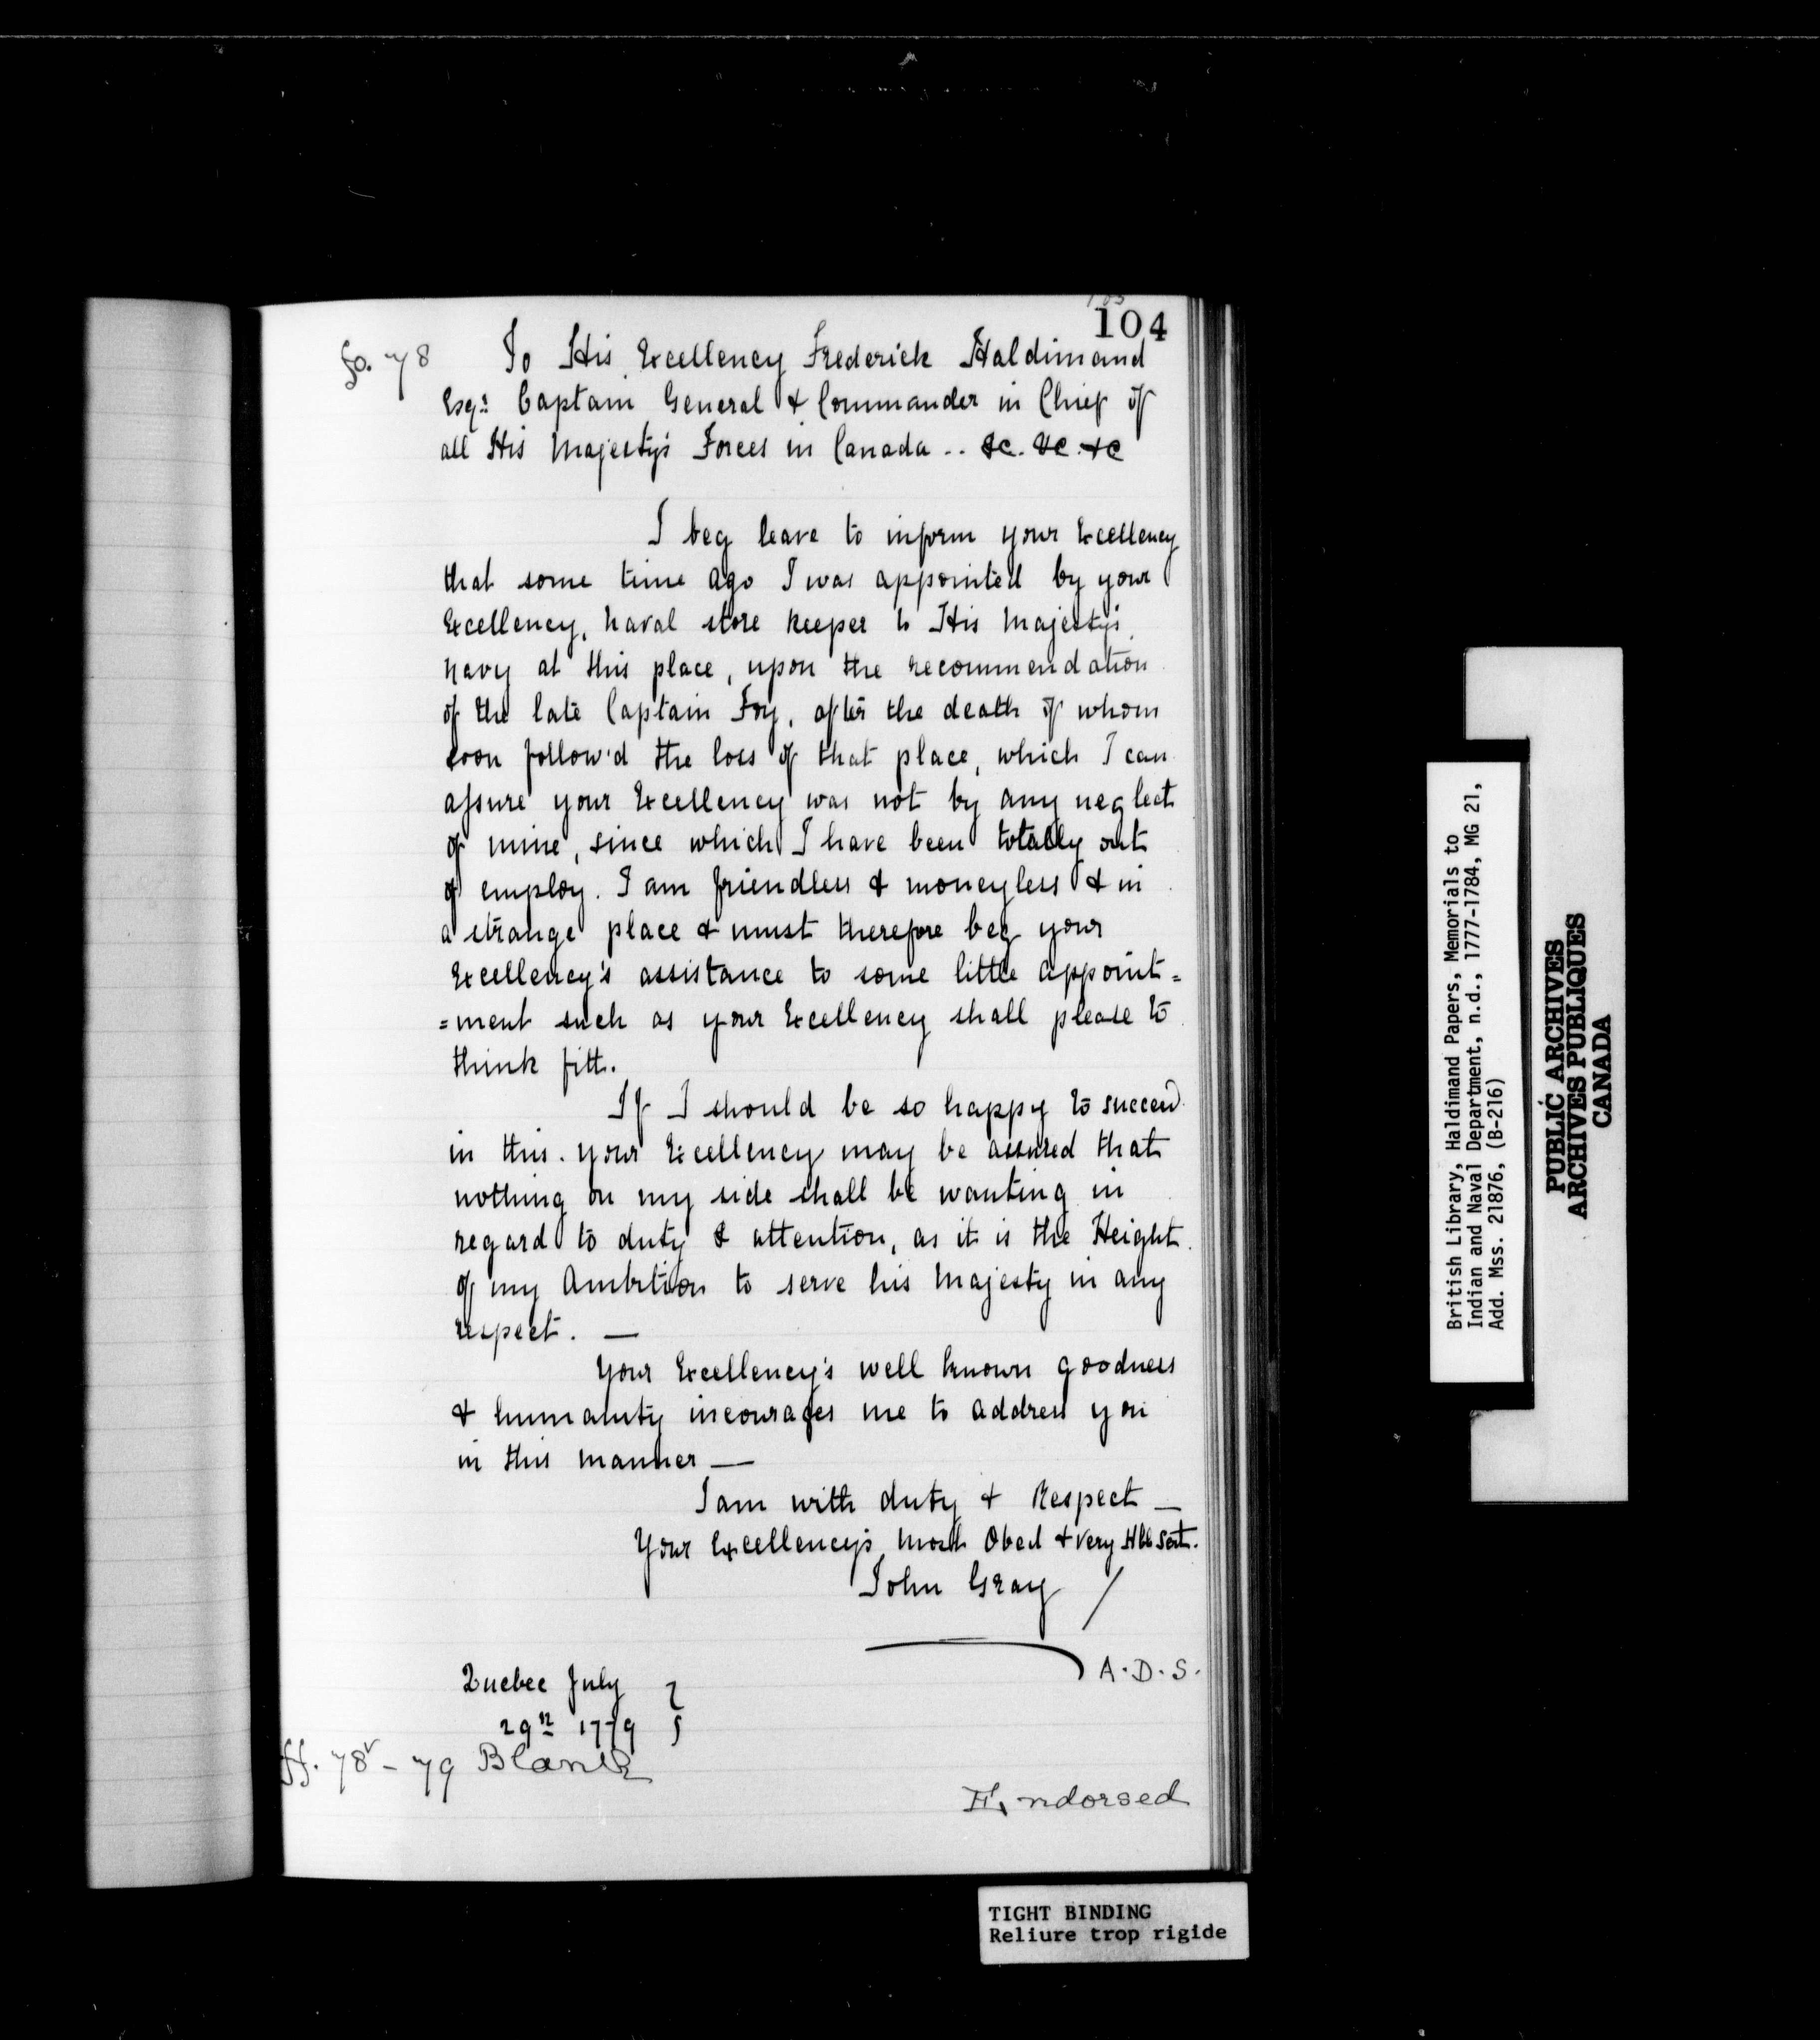 104
fo. 78 To His Excellency Frederick Haldimand
Esqr. Captain General & Commander in Chief of
all His Majesty's Forces in Canada .. &c. &c. &c
I beg leave to inform your Excellency
that some time ago I was appointed by your
Excellency, naval store keeper to His Majesty's
navy at this place, upon the recommendation
of the late Captain Foy, after the death of whom
soon follow'd the loss of that place, which I can
assure your Excellency was not by any neglect
of mine, since which I have been totally out
of employ. I am friendless & moneyless & in
a strange place & must therefore beg your
Excellency's assistance to some little appoint=
=ment such as your Excellency shall please to
think fitt.
If I should be so happy to succeed
in this. your Excellency may be assured that
nothing on my side shall be wanting in
regard to duty & attention, as it is the Height
of my Ambition to serve his Majesty in any
respect. —
Your Excellency's well known goodness
& humanity incourages me to address you
in this manner —
I am with duty & Respect —
Your Excellency's most Obed & very Hble Sert.
John Gray /
A. D. S.
Quebec July
29th 1779
ff. 78v - 79 Blank
Endorsed
TIGHT BINDING
Reliure trop rigide
British Library, Haldimand Papers, Memorials to
Indian and Naval Department, n.d., 1777-1784, MG 21,
Add. Mss. 21876, (B-216)
PUBLIC ARCHIVES
ARCHIVES PUBLIQUES
CANADA